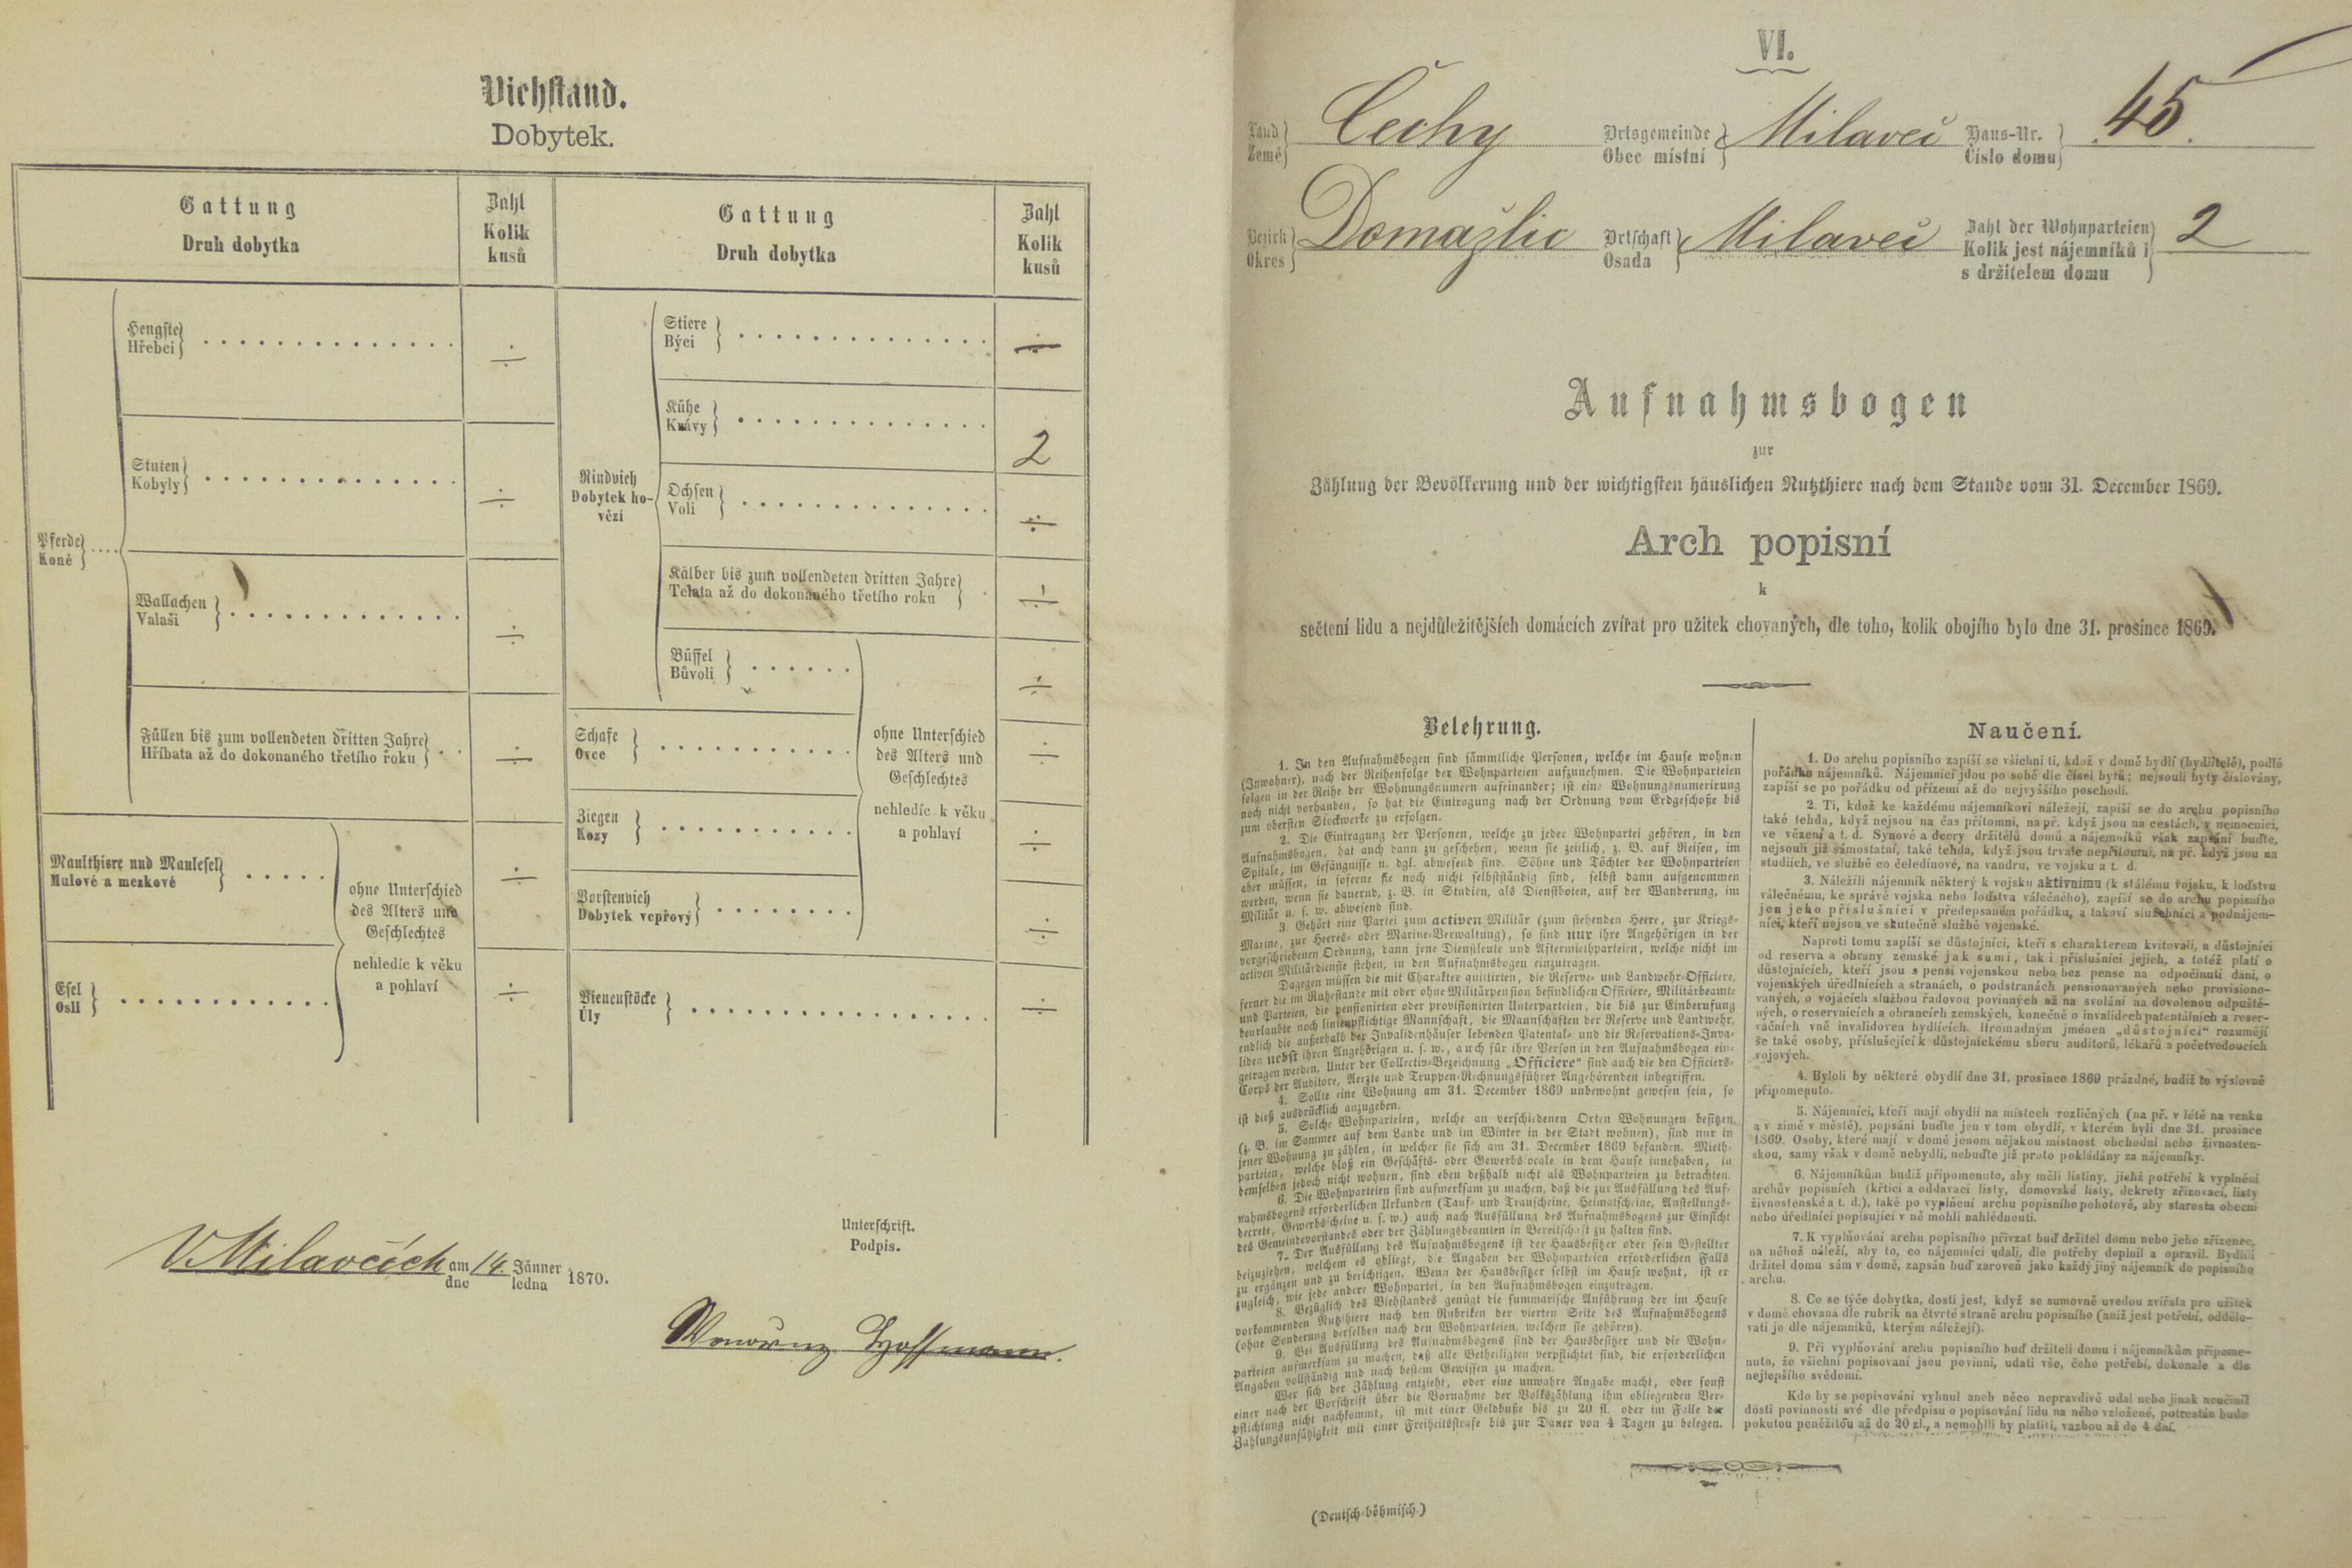 Viehstand.
Dobytek.
Gattung
Druh dobytka
Zahl
Kolik
kusů
Gattung
Druh dobytka
Zahl
Kolik
kusů
Pferde
Koně
Hengste
Hřebci
÷
Stuten
Kobyly
÷
Wallachen
Valaši
÷
Füllen bis zum vollendeten dritten Jahre
Hříbata až do dokonaného třetího roku
÷
Maulthiere und Maulesel
Mulové a mezkové
÷
Esel
Osli
÷
ohne Unterschied
des Alters und
Geschlechtes
nehledíc k věku
a pohlaví
Rindvieh
Dobytek ho-
vězí
Stiere
Býci
÷
Kühe
Krávy
2
Ochsen
Voli
÷
Kälber bis zum vollendeten dritten Jahre
Telata až do dokonaného třetího roku
÷
Büffel
Bůvoli
÷
Schafe
Ovce
÷
Ziegen
Kozy
÷
Borstenvieh
Dobytek vepřový
÷
ohne Unterschied
des Alters und
Geschlechtes
nehledíc k věku
a pohlaví
Bienenstöcke
Úly
÷
V Milavčích am 14. Jänner 1870.
dne ledna
Unterschrift.
Podpis.
Hoffmann.
VI.
Land
Země
Čechy
Ortsgemeinde
Obec místní
Milavč
Haus-Nr.
Číslo domu
45
Bezirk
Okres
Domažlic
Ortschaft
Osada
Milavč
Zahl der Wohnparteien
Kolik jest nájemníků i
s držitelem domu
2
Aufnahmsbogen
zur
Zählung der Bevölkerung und der wichtigsten häuslichen Nutzthiere nach dem Stande vom 31. December 1869.
Arch popisní
k
sečtení lidu a nejdůležitějších domácích zvířat pro užitek chovaných, dle toho, kolik obojího bylo dne 31. prosince 1869.
Belehrung.
1. In den Aufnahmsbogen sind sämmtliche Personen, welche im Hause wohnen
(Inwohner), nach der Reihenfolge der Wohnparteien aufzunehmen. Die Wohnparteien
folgen in der Reihe der Wohnungsnumern aufeinander; ist eine Wohnungsnumerirung
noch nicht vorhanden, so hat die Eintragung nach der Ordnung vom Erdgeschoße bis
zum obersten Stockwerke zu erfolgen.
2. Die Eintragung der Personen, welche zu jeder Wohnpartei gehören, in den
Aufnahmsbogen, hat auch dann zu geschehen, wenn sie zeitlich, z. B. auf Reisen, im
Spitale, im Gefängnisse u. dgl. abwesend sind. Söhne und Töchter der Wohnparteien
aber müssen, in soferne sie noch nicht selbstständig sind, selbst dann aufgenommen
werden, wenn sie dauernd, z. B. in Studien, als Dienstboten, auf der Wanderung, im
Militär u. s. w. abwesend sind.
3. Gehört eine Partei zum activen Militär (zum stehenden Heere, zur Kriegs-
Marine, zur Heeres- oder Marine-Verwaltung), so sind nur ihre Angehörigen in der
vorgeschriebenen Ordnung, dann jene Dienstleute und Aftermiethparteien, welche nicht im
activen Militärdienste stehen, in den Aufnahmsbogen einzutragen.
Dagegen müssen die mit Charakter quittirten, die Reserve- und Landwehr-Officiere,
ferner die im Ruhestande mit oder ohne Militärpension befindlichen Officiere, Militärbeamte
und Parteien, die pensionirten oder provisionirten Unterparteien, die bis zur Einberufung
beurlaubte noch linienpflichtige Mannschaft, die Mannschaften der Reserve und Landwehr,
endlich die außerhalb der Invalidenhäuser lebenden Patental- und die Reservations-Inva-
liden nebst ihren Angehörigen u. s. w., auch für ihre Person in den Aufnahmsbogen ein-
getragen werden. Unter der Collectiv-Bezeichnung „Officiere“ sind auch die den Officiers-
Corps der Auditore, Aerzte und Truppen-Rechnungsführer Angehörenden inbegriffen.
4. Sollte eine Wohnung am 31. December 1869 unbewohnt gewesen sein, so
ist dieß ausdrücklich anzugeben.
5. Solche Wohnparteien, welche an verschiedenen Orten Wohnungen besitzen
(z. B. im Sommer auf dem Lande und im Winter in der Stadt wohnen), sind nur in
jener Wohnung zu zählen, in welcher sie sich am 31. December 1869 befanden. Mieth-
parteien, welche bloß ein Geschäfts- oder Gewerbslocale in dem Hause innehaben, in
demselben jedoch nicht wohnen, sind eben deßhalb nicht als Wohnparteien zu betrachten.
6. Die Wohnparteien sind aufmerksam zu machen, daß die zur Ausfüllung des Auf-
nahmsbogens erforderlichen Urkunden (Tauf- und Trauscheine, Heimatscheine, Anstellungs-
decrete, Gewerbsscheine u. s. w.) auch nach Ausfüllung des Aufnahmsbogens zur Einsicht
des Gemeindevorstandes oder der Zählungsbeamten in Bereitschaft zu halten sind.
7. Der Ausfüllung des Aufnahmsbogens ist der Hausbesitzer oder sein Bestellter
beizuziehen, welchem es obliegt, die Angaben der Wohnparteien erforderlichen Falls
zu ergänzen und zu berichtigen. Wenn der Hausbesitzer selbst im Hause wohnt, ist er
zugleich, wie jede andere Wohnpartei, in den Aufnahmsbogen einzutragen.
8. Bezüglich des Viehstandes genügt die summarische Anführung der im Hause
vorkommenden Nutzthiere nach den Rubriken der vierten Seite des Aufnahmsbogens
(ohne Sonderung derselben nach den Wohnparteien, welchen sie gehören).
9. Bei Ausfüllung des Aufnahmsbogens sind der Hausbesitzer und die Wohn-
parteien aufmerksam zu machen, daß alle Betheiligten verpflichtet sind, die erforderlichen
Angaben vollständig und nach bestem Gewissen zu machen.
Wer sich der Zählung entzieht, oder eine unwahre Angabe macht, oder sonst
einer nach der Vorschrift über die Vornahme der Volkszählung ihm obliegenden Ver-
pflichtung nicht nachkommt, ist mit einer Geldbuße bis zu 20 fl. oder im Falle der
Zahlungsunfähigkeit mit einer Freiheitsstrafe bis zur Dauer von 4 Tagen zu belegen.
Naučení.
1. Do archu popisního zapíší se všichni ti, kdož v domě bydlí (bydlitelé), podlé
pořádku nájemníků. Nájemníci jdou po sobě dle čísel bytů; nejsouli byty číslovány,
zapíší se po pořádku od přízemí až do nejvyššího poschodí.
2. Ti, kdož ke každému nájemníkovi náležejí, zapíší se do archu popisního
také tehda, když nejsou na čas přítomni, na př. když jsou na cestách, v nemocnici,
ve vězení a t. d. Synové a dcery držitelů domů a nájemníků však zapsáni buďte,
nejsouli již samostatní, také tehda, když jsou trvale nepřítomni, na př. když jsou na
studiích, ve službě co čeledínové, na vandru, ve vojsku a t. d.
3. Náležíli nájemník některý k vojsku aktivnímu (k stálému vojsku, k loďstvu
válečnému, ke správě vojska nebo loďstva válečného), zapíší se do archu popisního
jen jeho příslušníci v předepsaném pořádku, a takoví služebníci a podnájem-
níci, kteří nejsou ve skutečné službě vojenské.
Naproti tomu zapíší se důstojníci, kteří s charakterem kvitovali, a důstojníci
od reserva a obrany zemské jak sami, tak i příslušníci jejich, a totéž platí o
důstojnících, kteří jsou s pensí vojenskou nebo bez pense na odpočinutí dáni, o
vojenských úřednících a stranách, o podstranách pensionovaných nebo provisiono-
vaných, o vojácích službou řadovou povinných až na svolání na dovolenou odpuště-
ných, o reservnících a obrancích zemských, konečně o invalidech patentálních a reser-
vačních vně invalidoven bydlících. Hromadným jménem „důstojníci“ rozumějí
se také osoby, příslušející k důstojnickému sboru auditorů, lékařů a početvedoucích
vojových.
4. Byloli by některé obydlí dne 31. prosince 1869 prázdné, budiž to výslovně
připomenuto.
5. Nájemníci, kteří mají obydlí na místech rozličných (na př. v létě na venku
a v zimě v městě), popsáni buďte jen v tom obydlí, v kterém byli dne 31. prosince
1869. Osoby, které mají v domě jenom nějakou místnost obchodní nebo živnosten-
skou, samy však v domě nebydlí, nebuďte již proto pokládány za nájemníky.
6. Nájemníkům budiž připomenuto, aby měli listiny, jichž potřebí k vyplnění
archův popisních (křtící a oddavací listy, domovské listy, dekrety zřizovací, listy
živnostenské a t. d.), také po vyplnění archu popisního pohotově, aby starosta obecní
nebo úředlníci popisující v ně mohli nahlédnouti.
7. K vyplňování archu popisního přivzat buď držitel domu nebo jeho zřízenec,
na něhož náleží, aby to, co nájemníci udali, dle potřeby doplnil a opravil. Bydlíli
držitel domu sám v domě, zapsán buď zároveň jako každý jiný nájemník do popisního
archu.
8. Co se týče dobytka, dosti jest, když se sumovně uvedou zvířata pro užitek
v domě chovaná dle rubrik na čtvrté straně archu popisního (aniž jest potřebí, oddělo-
vati je dle nájemníků, kterým náležejí).
9. Při vyplňování archu popisního buď držiteli domu i nájemníkům připome-
nuto, že všichni popisovaní jsou povinni, udati vše, čeho potřebí, dokonale a dle
nejlepšího svědomí.
Kdo by se popisování vyhnul aneb něco nepravdivě udal nebo jinak neučinil
dosti povinnosti své dle předpisu o popisování lidu na něho vzložené, potrestán bude
pokutou peněžitou až do 20 zl., a nemohlli by platiti, vazbou až do 4 dní.
(Deutsch-böhmisch.)